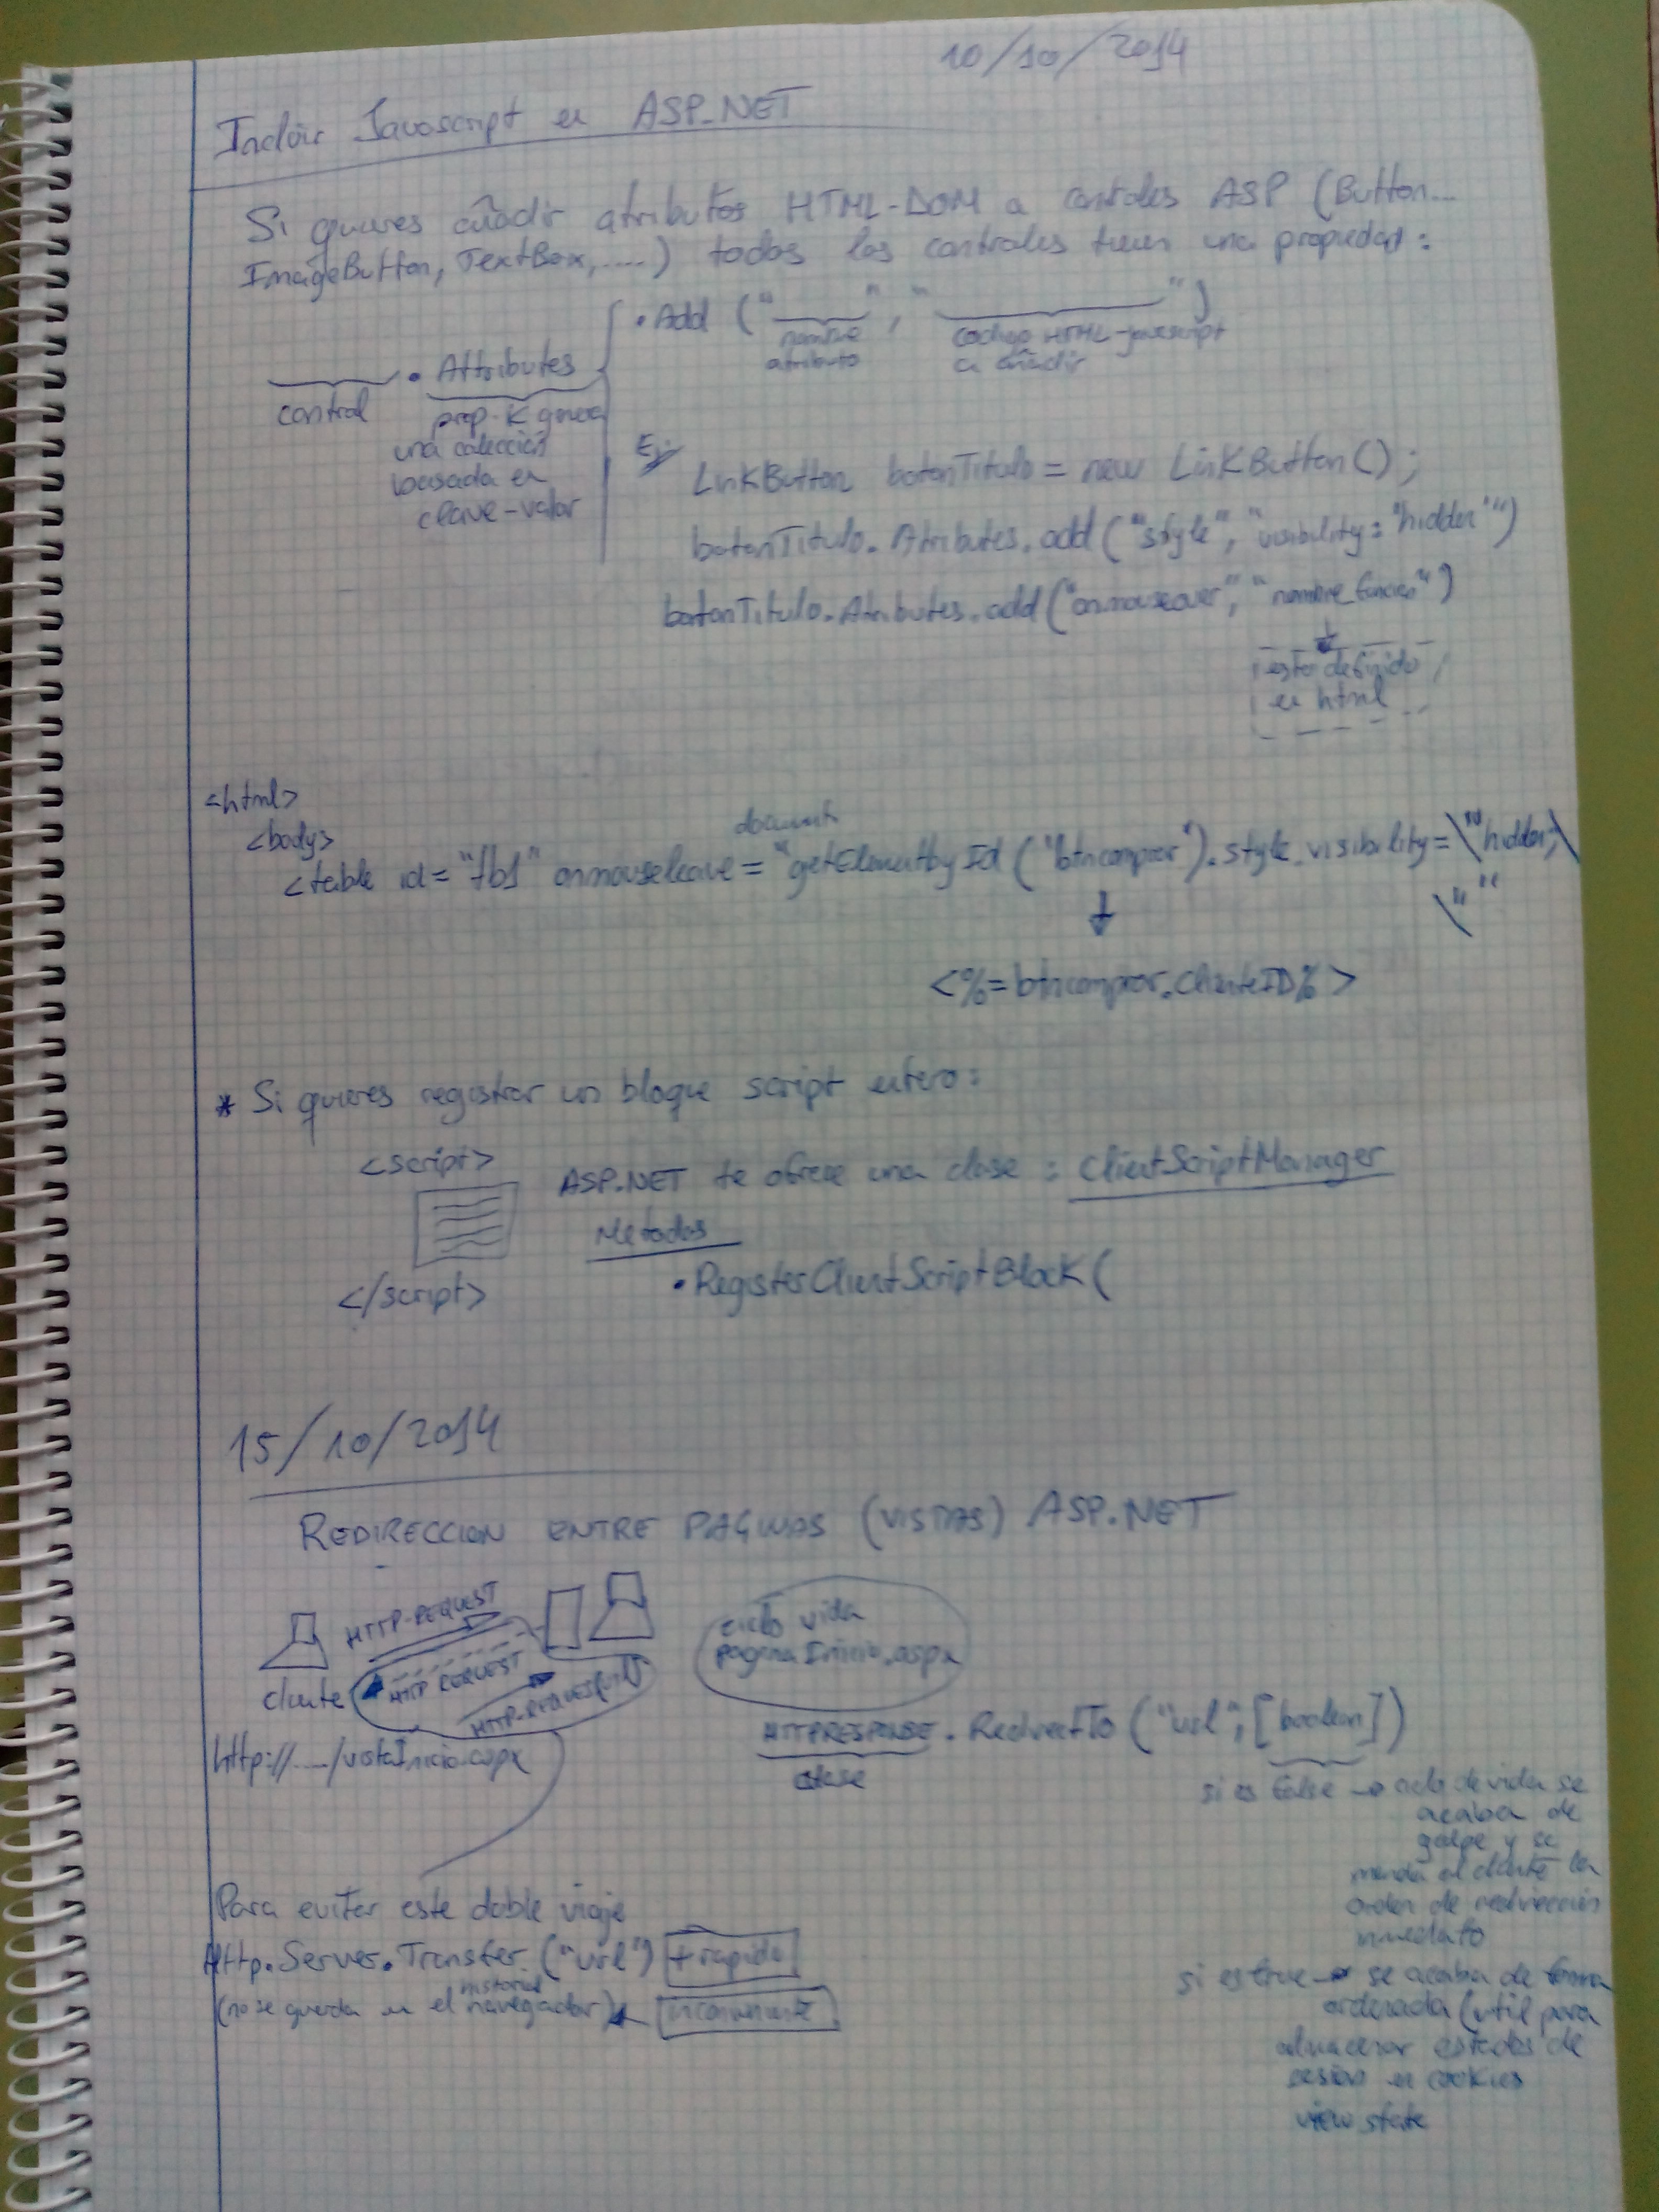 10/10/2014
Incluir Javascript en ASP.NET
Si quieres añadir atributos HTML-DOM a controles ASP (Button...
ImageButton, TextBox,....) todos los controles tienen una propiedad:
• Add ("______", "______")
nombre atributo
codigo HTML-javascript a añadir
______ . Attributes
control
prop. K genera
una colección
basada en
clave-valor
Ej
LinkButton botonTitulo = new LinkButton();
botonTitulo.Atributes.add("style", "visibility:"hidden"")
botonTitulo.Atributes.add("onmouseover", "nombre_funcion")
esta definido
en html
<html>
<body>
document
<table id="tb1" onmouseleave="getElementbyId("btncomprar").style.visibility=\"hidden;\
\""
<%=btncomprar.ClienteID%>
* Si quieres registrar un bloque script entero:
<script>
ASP.NET te ofrece una clase: ClientScriptManager
Metodos
</script>
• RegisterClientScriptBlock(
15/10/2014
REDIRECCION ENTRE PAGINAS (VISTAS) ASP.NET
HTTP-REQUEST
HTTP REQUEST
cliente
HTTP-REQUEST
ciclo vida
paginaInicio.aspx
http://..../vistaInicio.aspx
HTTPRESPONSE.RedirectTo("url",[boolean])
clase
si es false → ciclo de vida se
acaba de
golpe y se
manda al cliente la
orden de redireccion
inmediato
si es true → se acaba de forma
ordenada (util para
almacenar estados de
sesion en cookies
view state
Para evitar este doble viaje
Http.Server.Transfer.("url") + rapido
historial
(no se guarda en el navegador) inconveniente